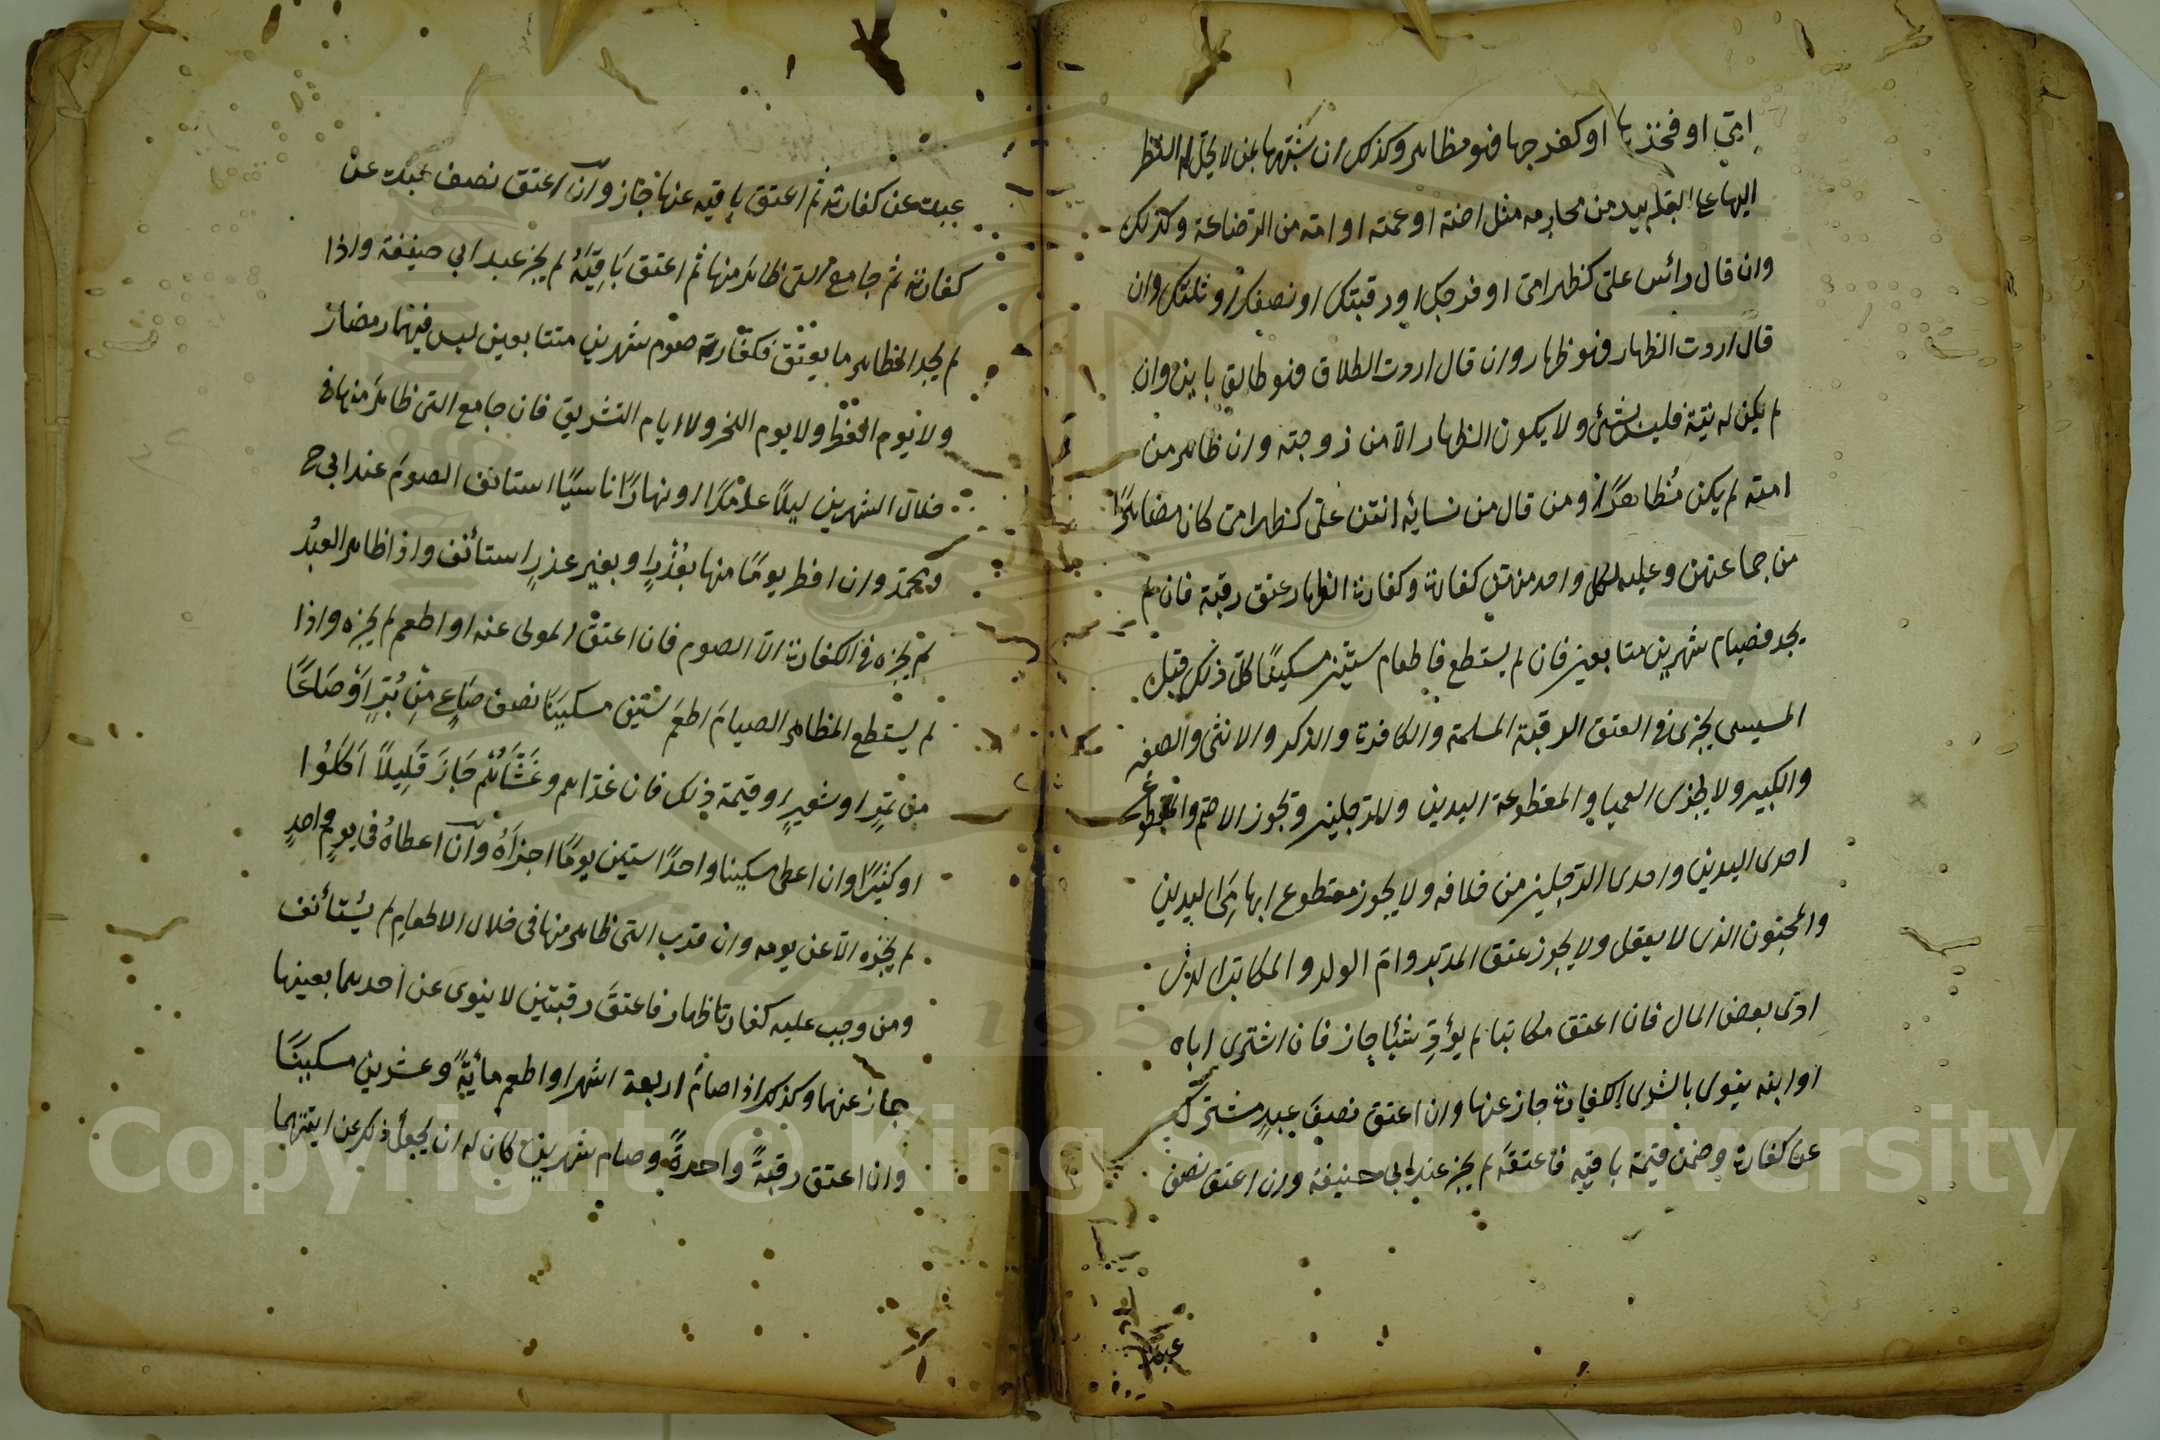 امى او فخذها او كفرجها فهو مظاهر وكذلك ان شبهها بمن لا يحل له النظر
اليها على من محارمه مثل اخته او عمته او امه من الرضاعة وكذلك
وان قال رأس على كظهر امى او فرجك او رقبتك او نصفك او ثلثك وان
قال اردت الظهار فهو ظهار وان قال اردت الطلاق فهو طالق باين وان
لم يكن له نيّة فليس بشئ ولا يكون الظهار الّا من زوجته وان ظاهر من
امته لم يكن مُظاهرًا ومن قال من نسائه انتن علىّ كظهر امى كان مظاهرًا
من جماعتهن وعليه لكل واحد منهن كفارة وكفارة الظهار عتق رقبة فان لم
يجد فصيام شهرين متتابعين فان لم يستطع فاطعام ستّين مسكينًا كلّ ذلك قبل
المسيس يجزى فى العتق الرقبة المسلمة والكافرة والذكر والانثى والصغير
والكبير ولا يجزى العميا والمقطوعة اليدين والرّجلين وتجوز الاصمّ والمقطوع
احدى اليدين واحدى الرّجلين من خلافه ولا يجوز مقطوع ابهامَى اليدين
والمجنون الذى لا يعقل ولا يجوز عتق المدبّر وامّ الولد والمكاتب الذى
ادّى بعض المال فان اعتق مكاتبا لم يؤدِّ شيئًا جاز فان اشترى اباه
او ابنه ينوى بالشرى الكفارة جاز عنها وان اعتق نصفَ عبدٍ مشترك
عن كفارة وضمن قيمة باقيه فاعتقَه لم يجز عند ابى حنيفة وان اعتق نصف
عبده
عبده عن كفارته ثم اعتق باقيه عنها جاز وان اعتق نصف عبده عن
كفارته ثم جامع التى ظاهر منها ثم اعتق بَاقِيَهُ لم يجز عند ابى حنيفة واذا
لم يجد المظاهر ما يعتق فكفّارته صوم شهرين متتابعين ليس فيهما رمضان
ولا يوم الفطر ولا يوم النحر ولا ايام التشريق فان جامع التى ظاهرَ منها فى
خلال الشهرين ليلًا عامدًا او نهارًا ناسيًا استانف الصومَ عند ابى ح
ومحمّد وان افطر يومًا منها بعُذْرٍ او بغير عذرٍ استأنف واذا ظاهر العبدُ
لم يجزه فى الكفارة الّا الصوم فان اعتقَ المولى عنه او اطعم لم يجزه واذا
لم يستطع المظاهر الصيامَ اطعَم ستّين مسكينًا نصف صَاعٍ مِن بُرٍّ اَوْ صَاعًا
من تَمْرٍ او شعيرٍ او قيمة ذلك فان غدّاهم وعَشَّاهُم جَازَ قَلِيلًا اَكَلُوا
او كثيرًا وان اعطى مسكينا واحدًا ستين يومًا اجزَأَهُ وان اعطاهُ فى يومٍ واحدٍ
لم يجزه الّا عن يومه وان قرب التى ظاهر منها فى خلال الاطعام لم يستأنف
ومن وجب عليه كفارتا ظهار فاعتقَ رقبتين لا ينوى عن احديهما بعينها
جاز عنهما وكذلك اذا صامَ اربعة اشهر او اطعم مائةً وعشرين مسكينًا
وان اعتق رقبةً واحدةً وصام شهرين كان له ان يجعل ذلك عن ايتهما
Copyright © King Saud University
1957